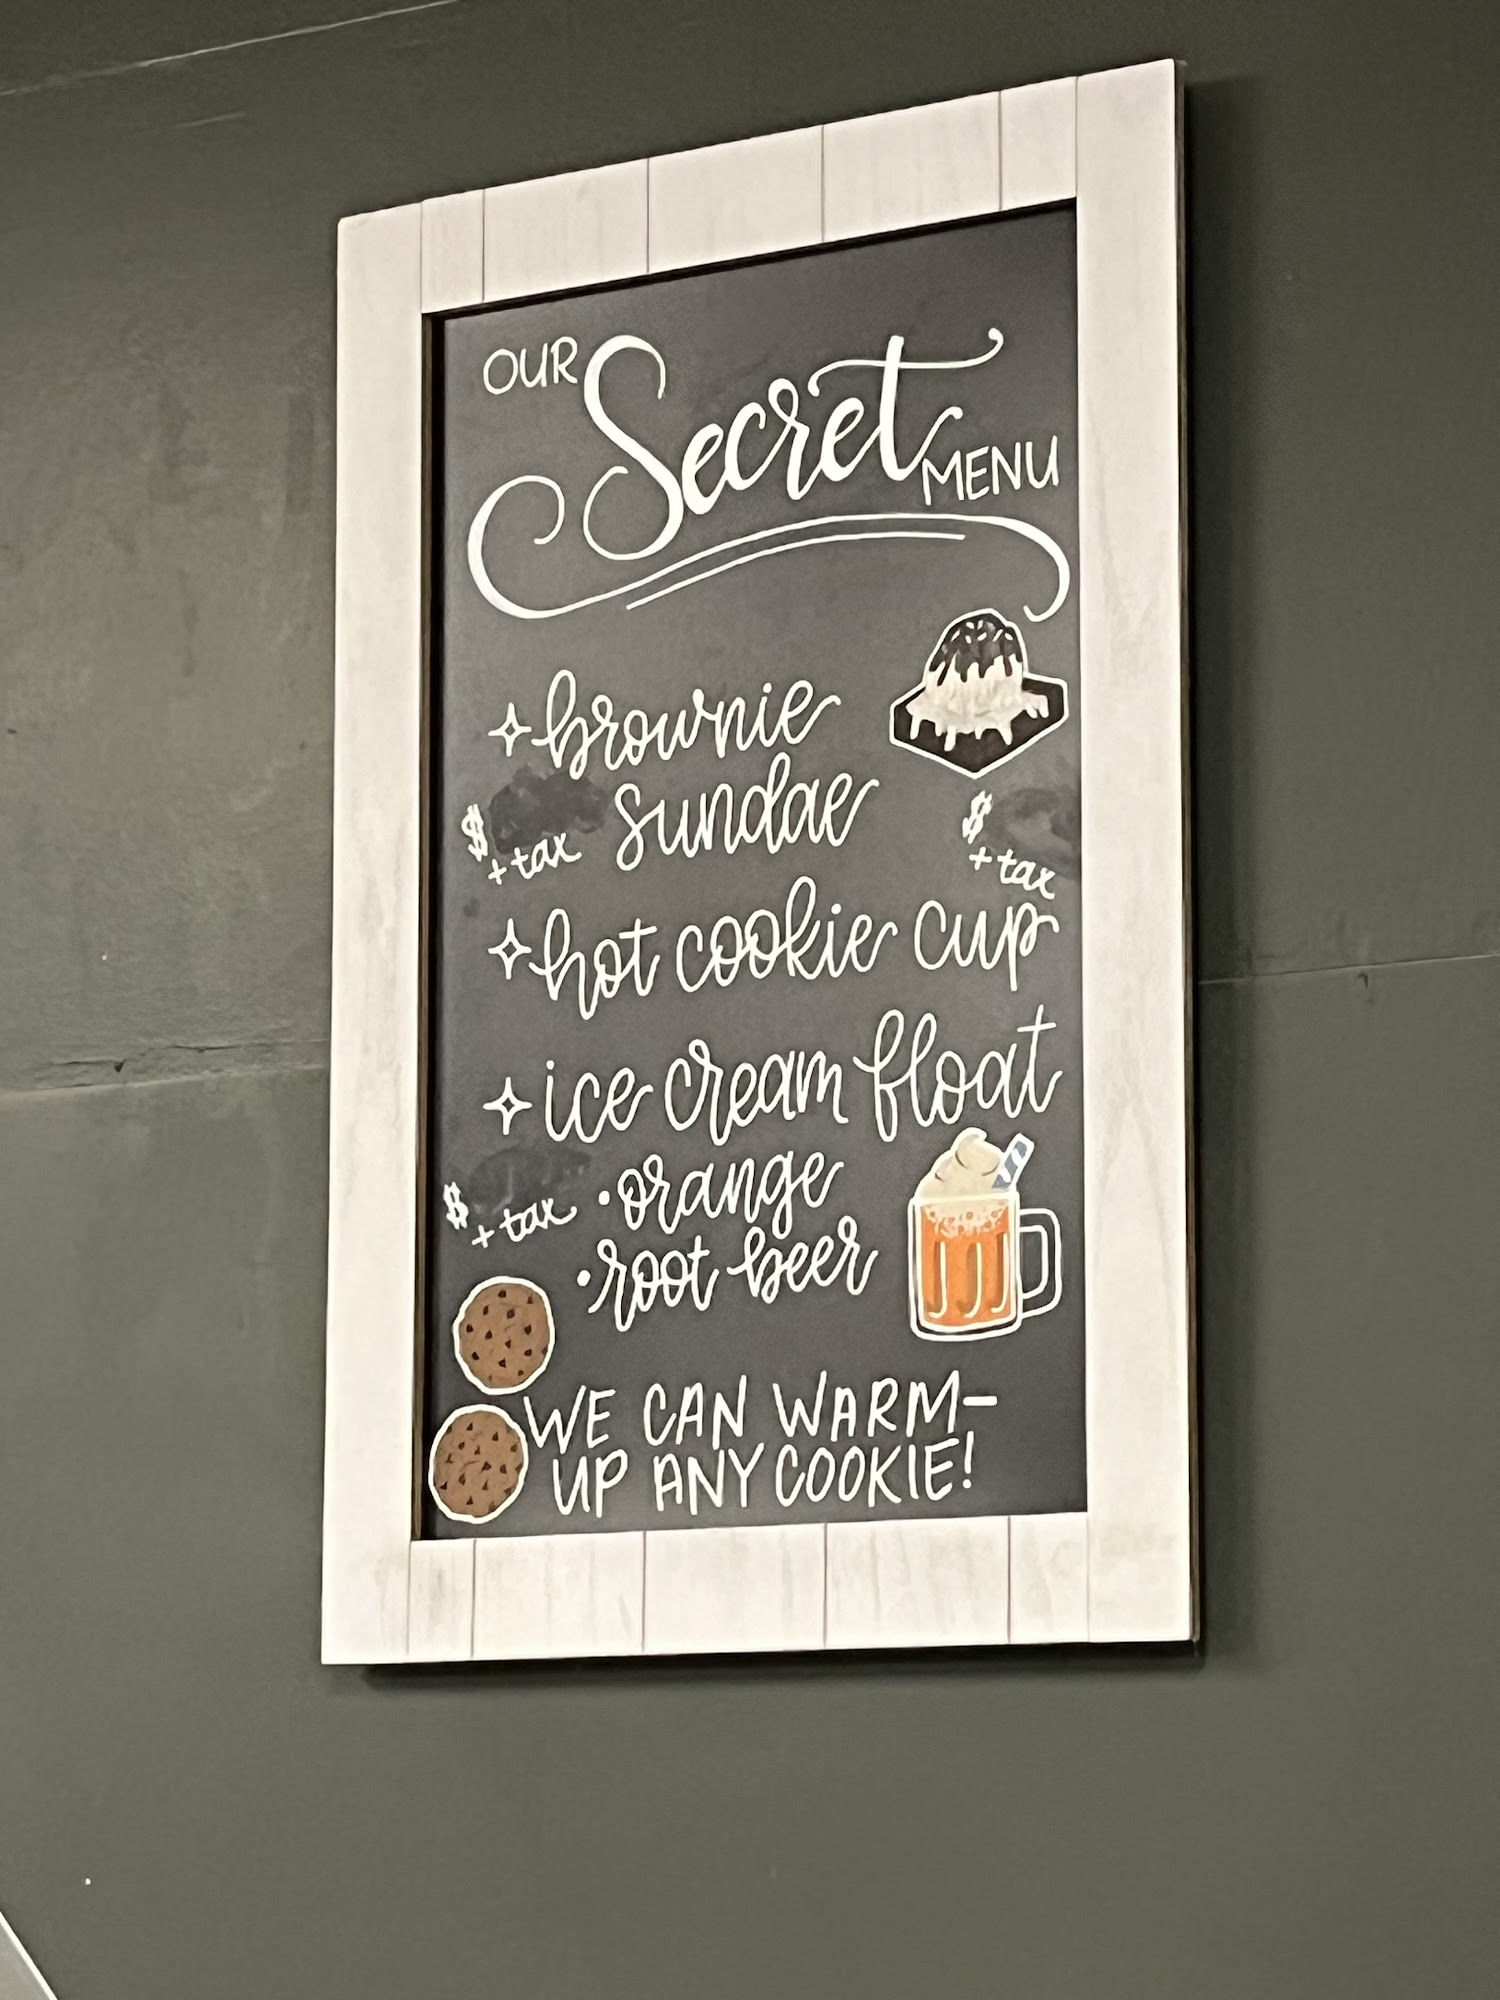 OUR Secret MENU
brownie
$ +tax sundae
$ +tax
hot cookie cup
ice cream float
$ +tax • orange
• root beer
WE CAN WARM-
UP ANY COOKIE!